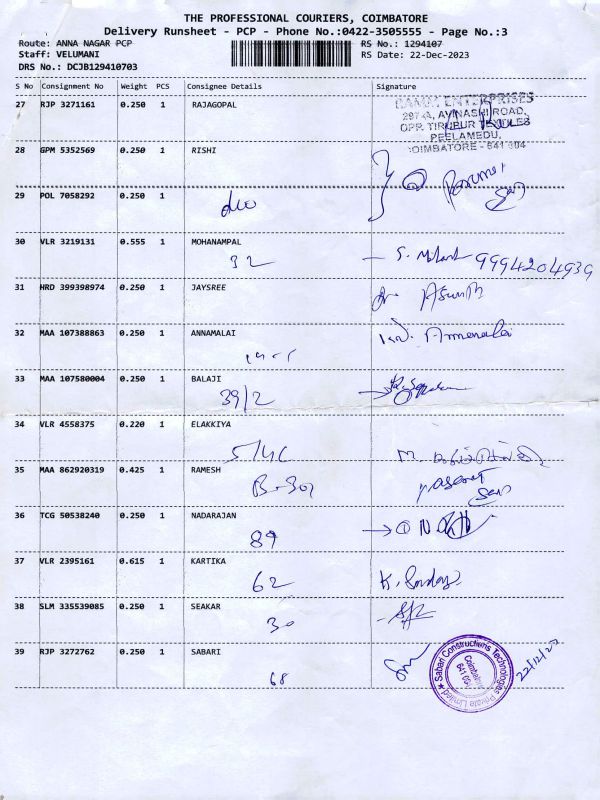 THE PROFESSIONAL COURIERS, COIMBATORE
Delivery Runsheet - PCP - Phone No.:0422-3505555 - Page No.:3
Route: ANNA NAGAR PCP RS No.: 1294107
Staff: VELUMANI RS Date: 22-Dec-2023
DRS No.: DCJB129410703
S No Consignment No Weight PCS Consignee Details Signature
27 RJP 3271161 0.250 1 RAJAGOPAL
ENTERPRISES
AVINASHI ROAD,
OPP. TIRUPUR TEXTILES
PEELAMEDU,
COIMBATORE - 641 004
28 GPM 5352569 0.250 1 RISHI
29 POL 7058292 0.250 1
30 VLR 3219131 0.555 1 MOHANAMPAL
32 9994204939
31 HRD 399398974 0.250 1 JAYSREE
32 MAA 107388863 0.250 1 ANNAMALAI
33 MAA 107580004 0.250 1 BALAJI
39/2
34 VLR 4558375 0.220 1 ELAKKIYA
35 MAA 862920319 0.425 1 RAMESH
36 TCG 50538240 0.250 1 NADARAJAN
89
37 VLR 2395161 0.615 1 KARTIKA
62
38 SLM 335539085 0.250 1 SEAKAR
30
39 RJP 3272762 0.250 1 SABARI
68
Sabari Constructions Technologies Private Limited
Coimbatore
641 004